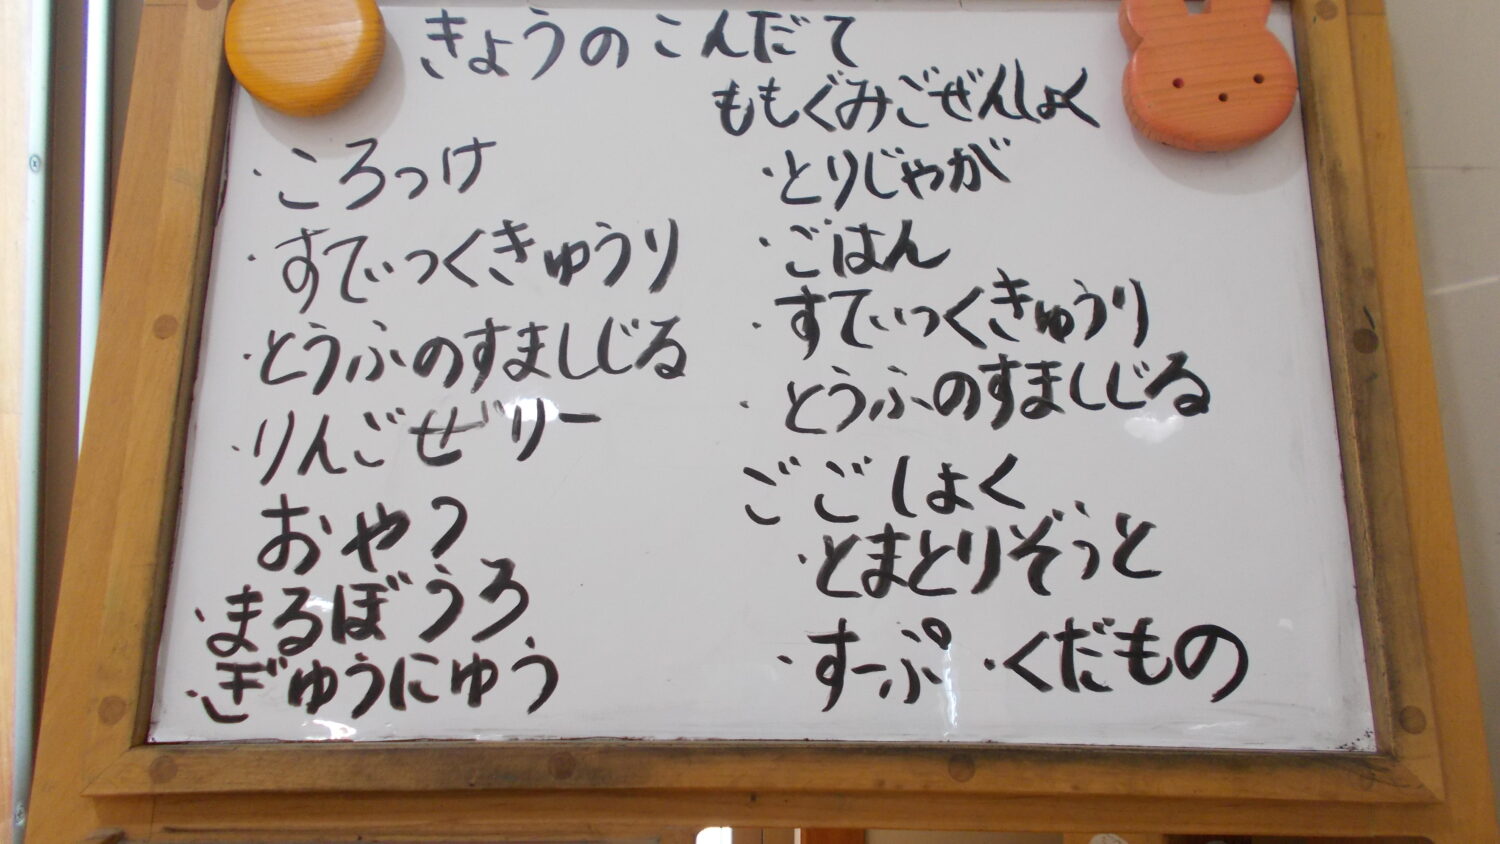 きょうのこんだて
・ころっけ
・すてぃっくきゅうり
・とうふのすましじる
・りんごぜりー
おやつ
・まるぼうろ
・ぎゅうにゅう
ももぐみごぜんしょく
・とりじゃが
・ごはん
・すてぃっくきゅうり
・とうふのすましじる
ごごしょく
・とまとりぞっと
・すーぷ ・くだもの